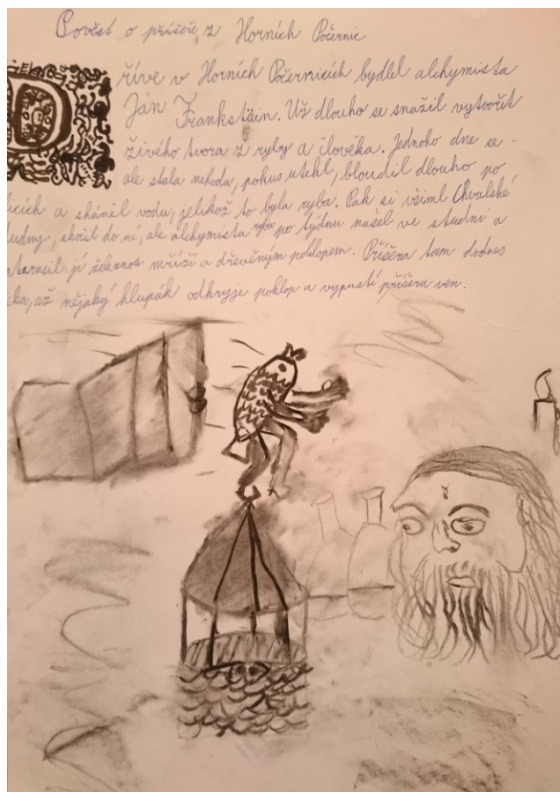 Pověst o příšeře z Horních Počernic
Dříve v Horních Počernicích bydlel alchymista
Ján Frankštain. Už dlouho se snažil vytvořit
živého tvora z ryby a človéka. Jednoho dne se
ale stala nehoda, pokus utekl, bloudil dlouho po
licích a sháněl vodu, jelikož to byla ryba. Pak si všiml Chvalské
tudny, skočil do ní, ale alchymista rybo po týdnu našel ve studni a
atarasil jí železnou mříží a dřevěným poklopem. Příšera tam dodnes
eká, až nějaký hlupák odkryje poklop a vypustí příšera ven.